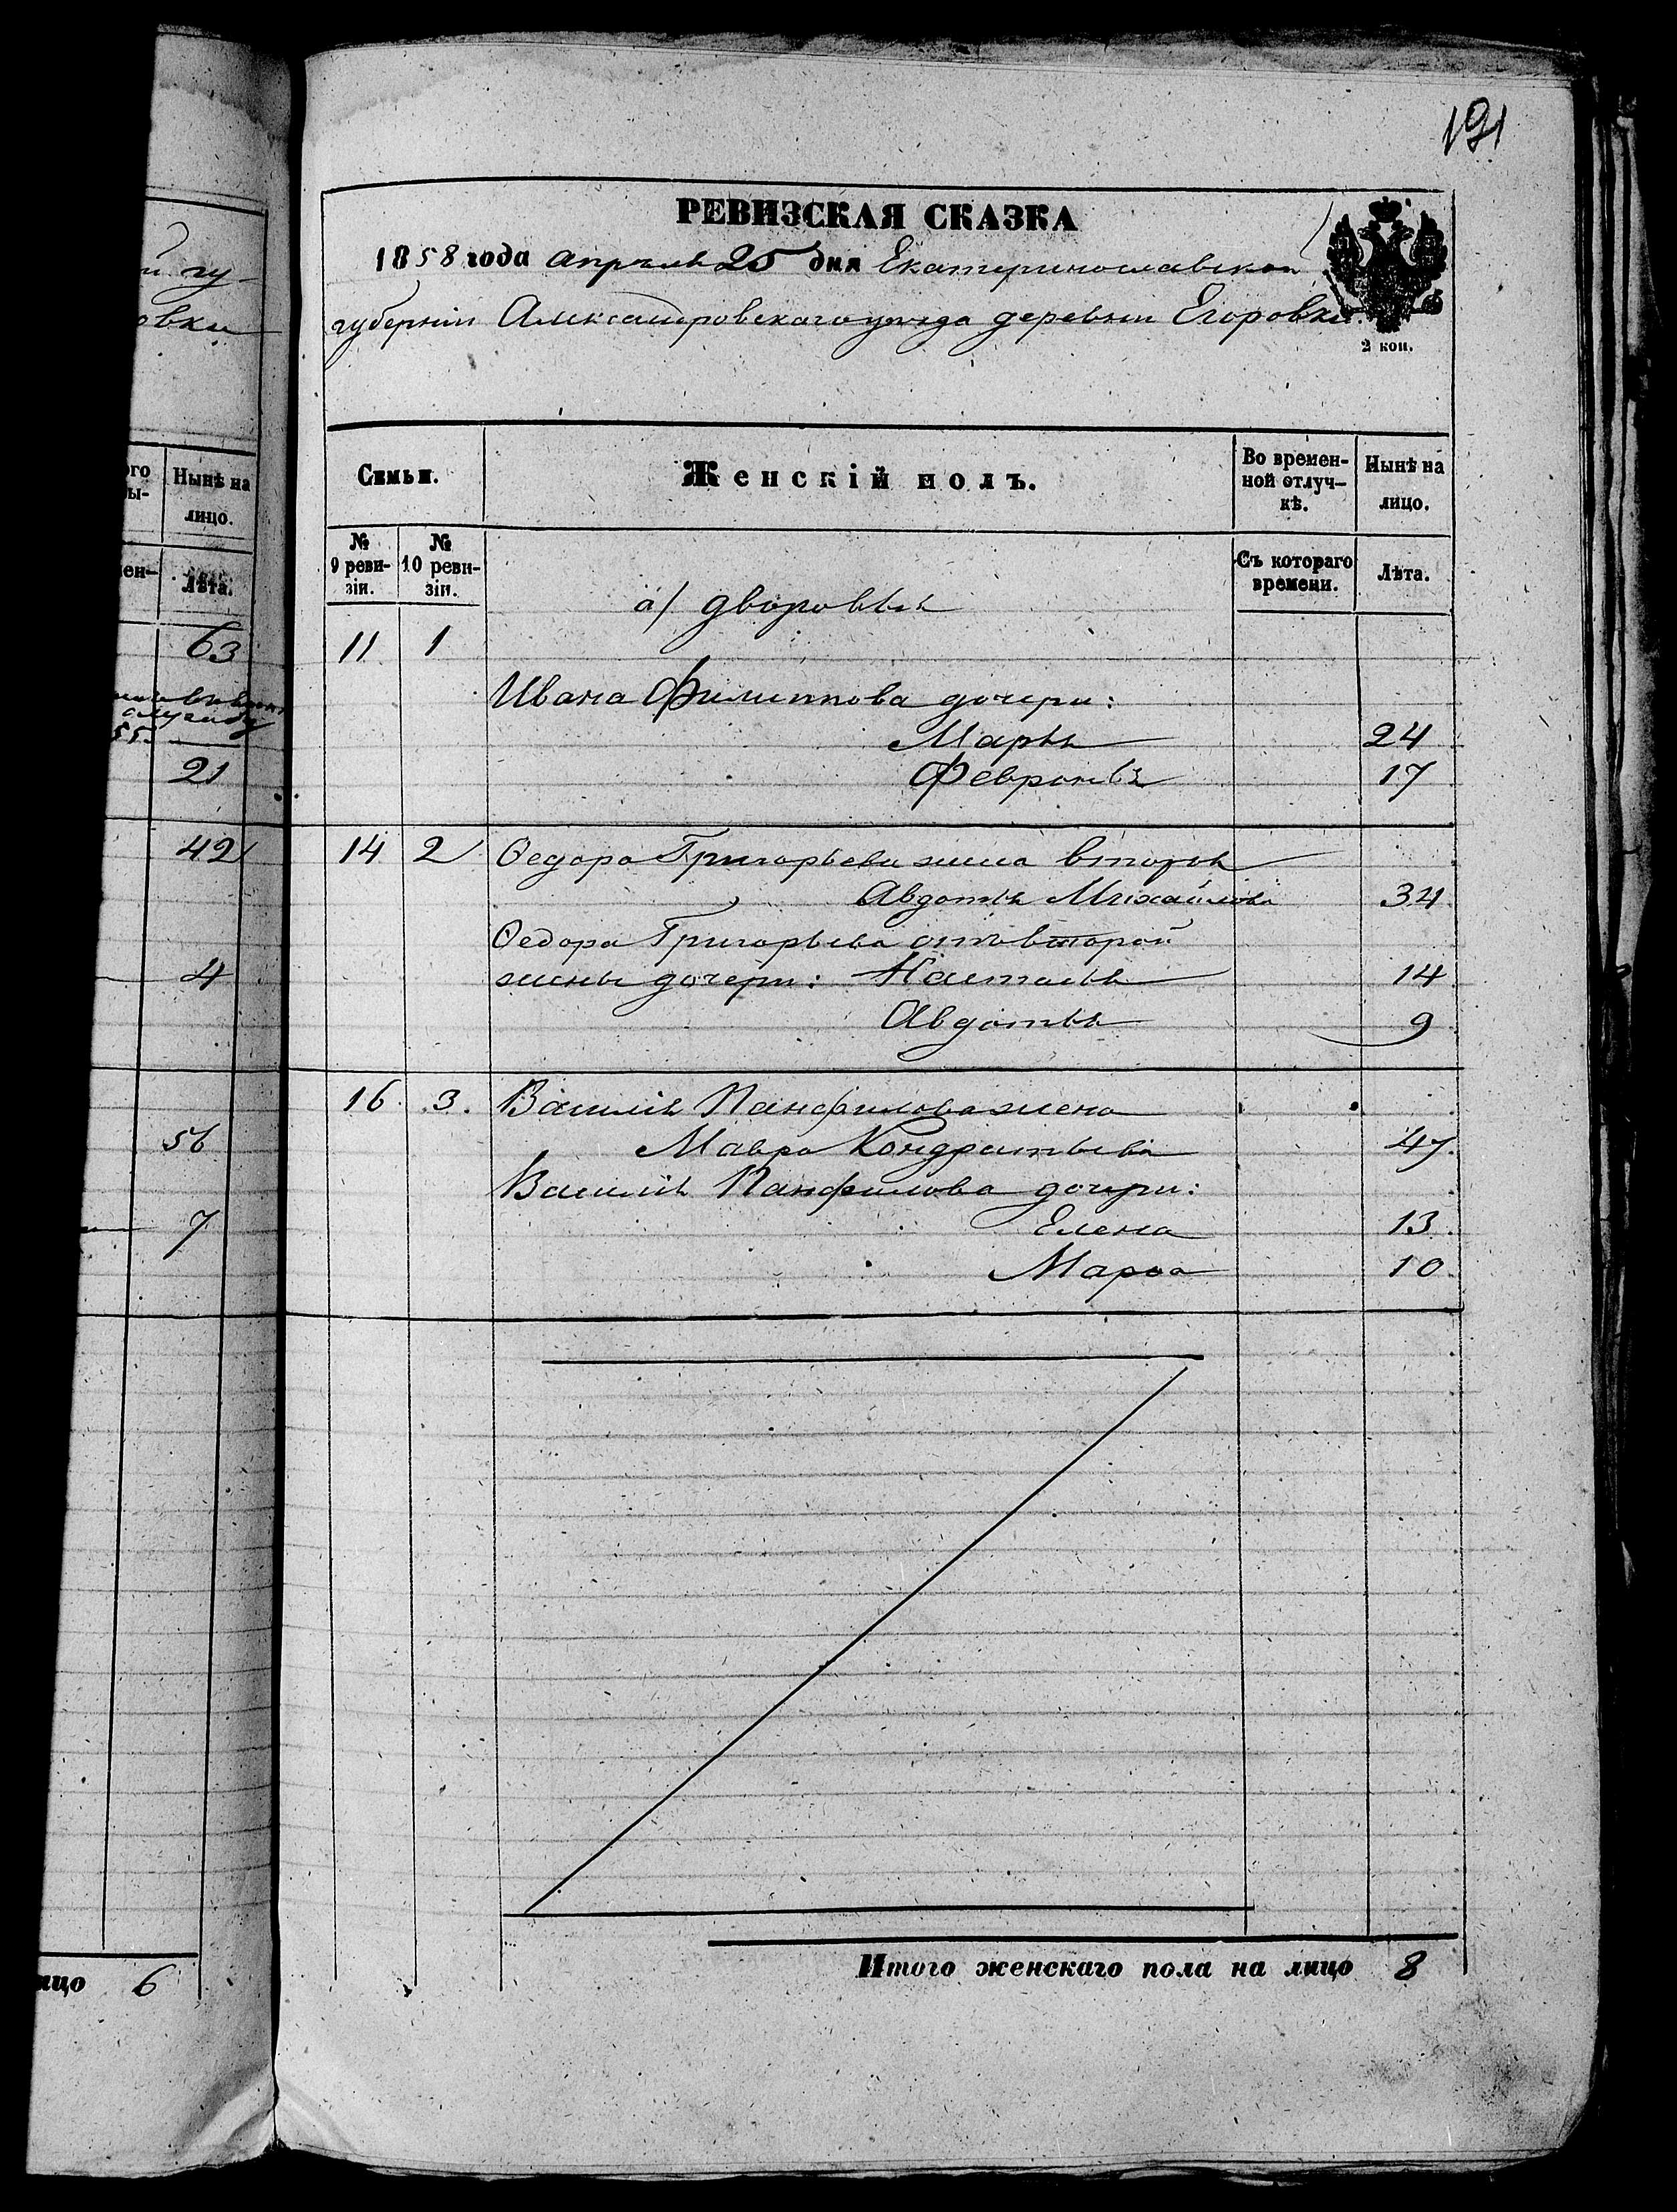 191
РЕВИЗСКАЯ СКАЗКА
1858 года апрѣля 25 дня Екатеринославской
губерніи Александровскаго уѣзда деревни Егоровки.
2 коп.
Семьи.
Женскій полъ.
Во времен-
ной отлуч-
кѣ.
Нынѣ на
лицо.
№
9 реви-
зіи.
№
10 реви-
зіи.
Съ котораго
времени.
Лѣта.
а/ дворовыя
11 1
Ивана Филиппова дочери:
Марья 24
Февронья 17
14 2 Ѳедора Григорьева жена вторая
Авдотья Михайлова 34
Ѳедора Григорьева отъ второй
жены дочери: Наталья 14
Авдотья 9
16. 3. Василія Панфилова жена
Мавра Кондратьева 47.
Василія Панфилова дочери:
Елена 13.
Марѳа 10
Итого женскаго пола на лицо 8
гу-
овки
ого
ы-
Нынѣ на
лицо.
ен-
Лѣта.
63
55.
21
42
4
56
7
ицо 6